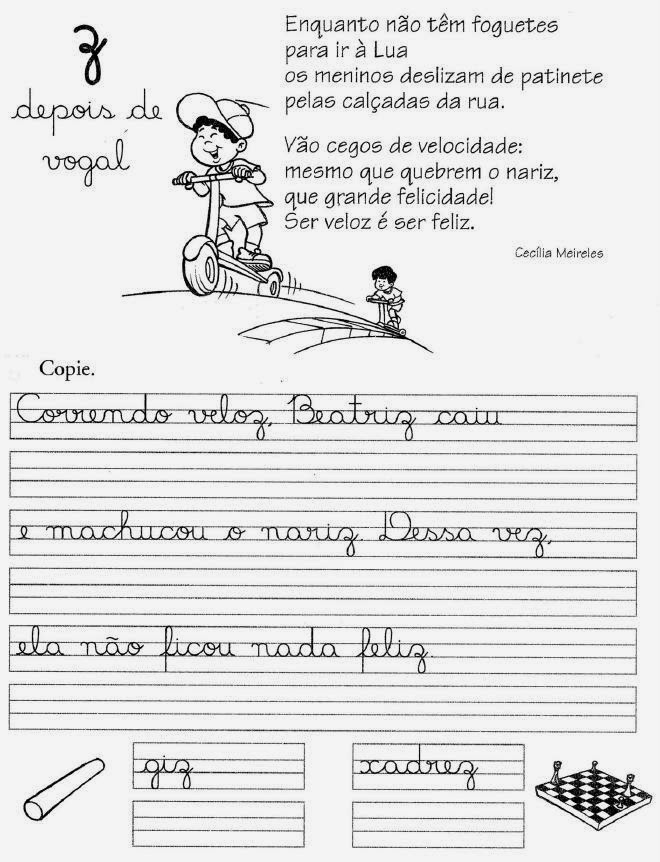 z
depois de
vogal
Enquanto não têm foguetes
para ir à Lua
os meninos deslizam de patinete
pelas calçadas da rua.
Vão cegos de velocidade:
mesmo que quebrem o nariz,
que grande felicidade!
Ser veloz é ser feliz.
Cecília Meireles
Copie.
Correndo veloz, Beatriz caiu
e machucou o nariz. Dessa vez,
ela não ficou nada feliz.
giz
xadrez